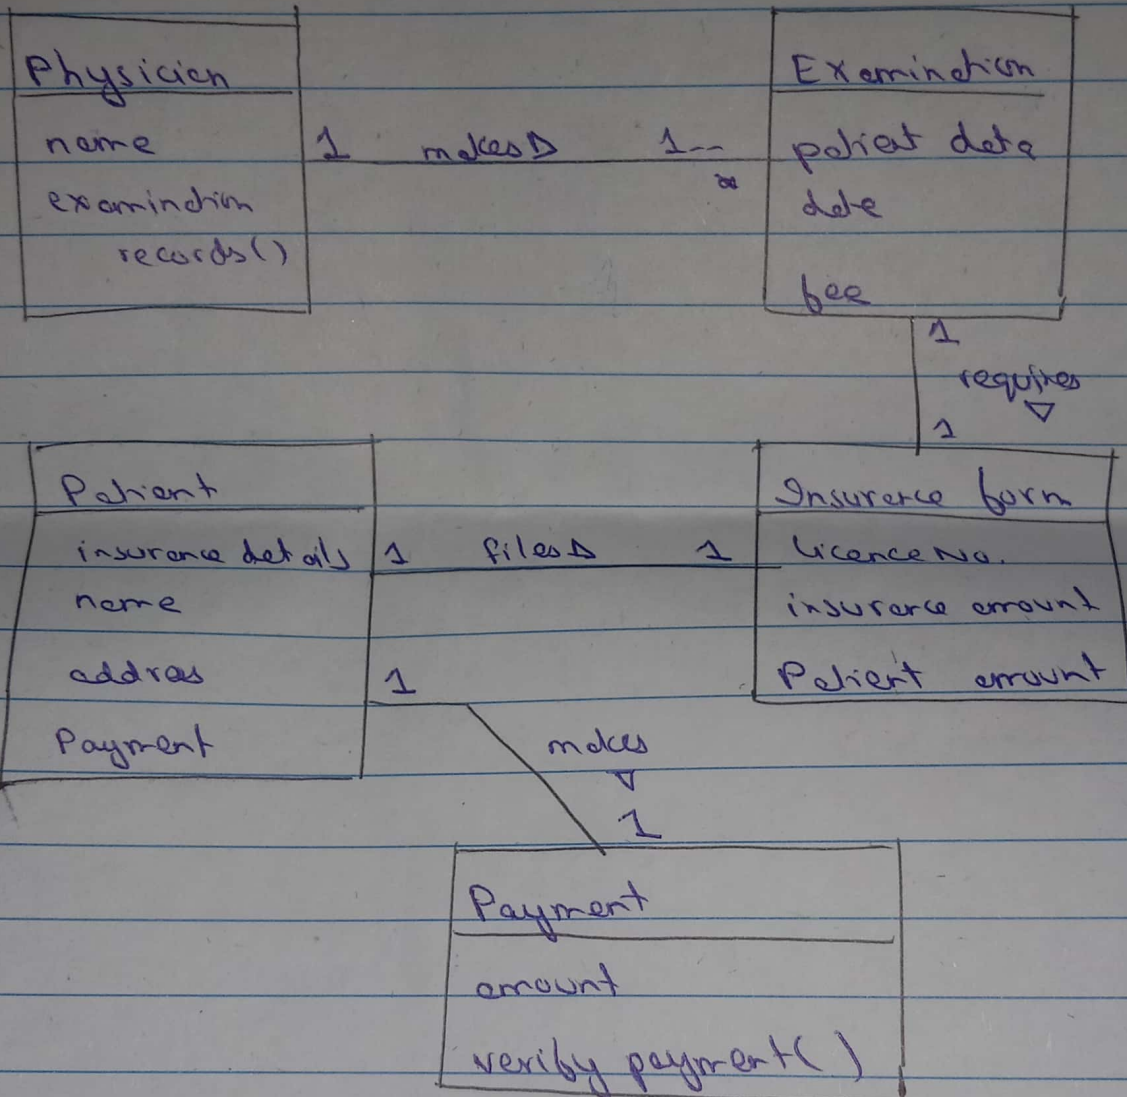 Physician
name
examination
records()
1 makes ▷ 1..*
Examination
patient data
date
fee
1
requires
▽
1
Patient
insurance details
name
address
Payment
1 files ▷ 1
Insurance form
Licence No.
insurance amount
Patient amount
1
makes
▽
1
Payment
amount
verify payment( )